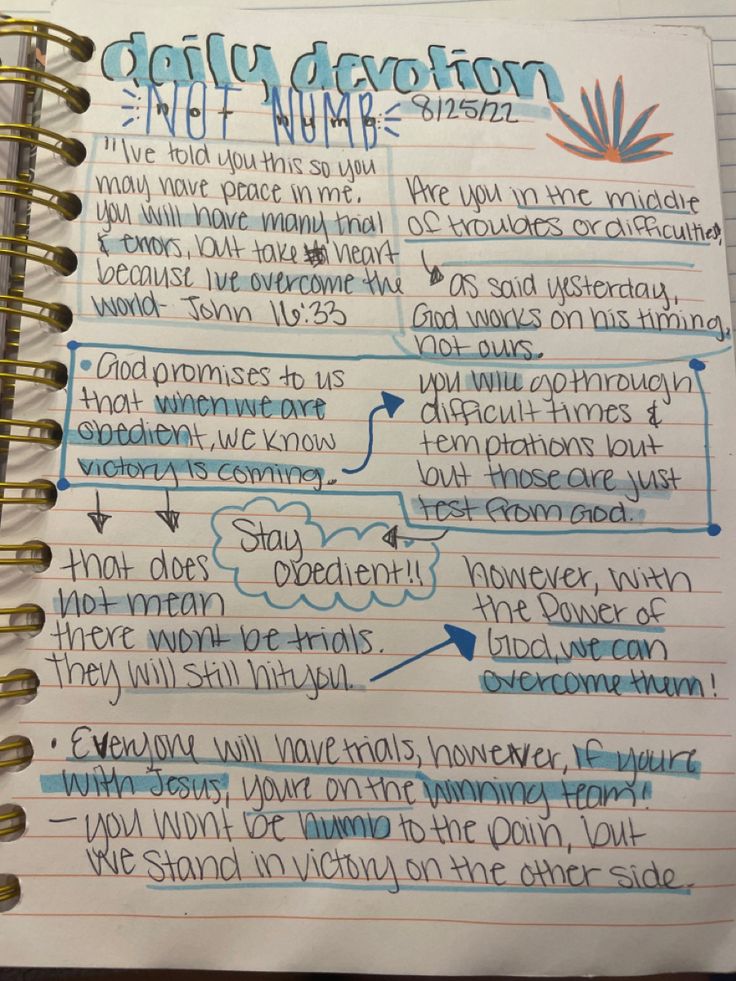 daily devotion
NOT NUMB
8/25/22
"Ive told you this so you
may have peace in me.
you will have many trial
& errors, but take heart
because Ive overcome the
world- John 16:33
Are you in the middle
of troubles or difficulties,
as said yesterday,
God works on his timing,
not ours.
• God promises to us
that when we are
obedient, we know
victory is coming.
you will go through
difficult times &
temptations but
but those are just
test from God.
Stay
obedient!!
that does
not mean
there wont be trials.
they will still hit you.
however, with
the Power of
God, we can
overcome them!
• Everyone will have trials, however, if youre
with Jesus, youre on the winning team!
- you wont be numb to the pain, but
we stand in victory on the other side.